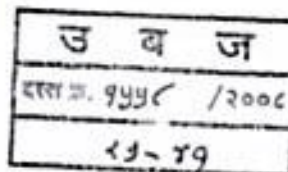 उ ब ज
दस्त क्र. १५५८ /२००८
२१-४१